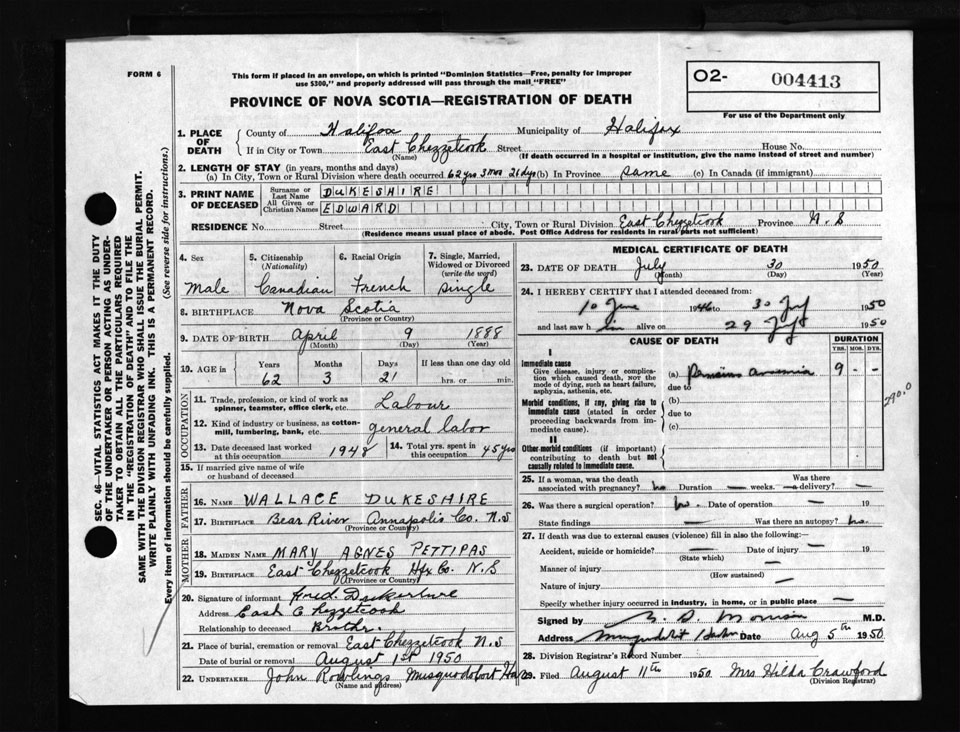 FORM 6
This form if placed in an envelope, on which is printed "Dominion Statistics—Free, penalty for improper
use $300," and properly addressed will pass through the mail "FREE"
PROVINCE OF NOVA SCOTIA—REGISTRATION OF DEATH
O2- 004413
For use of the Department only
SEC. 46—VITAL STATISTICS ACT MAKES IT THE DUTY
OF THE UNDERTAKER OR PERSON ACTING AS UNDER-
TAKER TO OBTAIN ALL THE PARTICULARS REQUIRED
IN THE "REGISTRATION OF DEATH" AND TO FILE THE
SAME WITH THE DIVISION REGISTRAR WHO SHALL ISSUE THE BURIAL PERMIT.
WRITE PLAINLY WITH UNFADING INK. THIS IS A PERMANENT RECORD.
Every item of information should be carefully supplied. (See reverse side for instructions.)
1. PLACE OF DEATH
County of Halifax Municipality of Halifax
If in City or Town East Chezzetcook Street House No.
(Name) (If death occurred in a hospital or institution, give the name instead of street and number)
2. LENGTH OF STAY (in years, months and days)
(a) In City, Town or Rural Division where death occurred 62 yrs 3 mos 21 dys (b) In Province same (c) In Canada (if immigrant)
3. PRINT NAME OF DECEASED
Surname or Last Name DUKESHIRE
All Given or Christian Names EDWARD
RESIDENCE No. Street City, Town or Rural Division East Chezzetcook Province N. S
(Residence means usual place of abode. Post Office Address for residents in rural parts not sufficient)
4. Sex Male
5. Citizenship (Nationality) Canadian
6. Racial Origin French
7. Single, Married, Widowed or Divorced (write the word) single
8. BIRTHPLACE Nova Scotia
(Province or Country)
9. DATE OF BIRTH April 9 1888
(Month) (Day) (Year)
10. AGE in Years Months Days If less than one day old
62 3 21 hrs. or min.
OCCUPATION
11. Trade, profession, or kind of work as spinner, teamster, office clerk, etc. Labour
12. Kind of industry or business, as cotton-mill, lumbering, bank, etc. general labor
13. Date deceased last worked at this occupation 1948
14. Total yrs. spent in this occupation 45 yrs
15. If married give name of wife or husband of deceased
FATHER
16. NAME WALLACE DUKESHIRE
17. BIRTHPLACE Bear River Annapolis Co. N.S
(Province or Country)
MOTHER
18. MAIDEN NAME MARY AGNES PETTIPAS
19. BIRTHPLACE East Chezzetcook Hfx Co. N.S
(Province or Country)
20. Signature of informant Fred. Dukeshire
Address East Chezzetcook
Relationship to deceased Brother.
21. Place of burial, cremation or removal East Chezzetcook N.S
Date of burial or removal August 1st 1950
22. UNDERTAKER John Rowlings Musquodoboit Har
(Name and address)
MEDICAL CERTIFICATE OF DEATH
23. DATE OF DEATH July 30 1950
(Month) (Day) (Year)
24. I HEREBY CERTIFY that I attended deceased from:
10 June 1946 to 30 July 1950
and last saw him alive on 29 July 1950
CAUSE OF DEATH DURATION
YRS. MOS. DYS.
I
Immediate cause
Give disease, injury or complication which caused death, NOT the mode of dying, such as heart failure, asphyxia, asthenia, etc.
(a) Pernicious anaemia 9 - -
due to
Morbid conditions, if any, giving rise to immediate cause (stated in order proceeding backwards from immediate cause).
(b)
due to
(c)
290.0
II
Other-morbid conditions (if important) contributing to death but not causally related to immediate cause.
25. If a woman, was the death associated with pregnancy? no Duration — weeks. Was there — delivery? —
26. Was there a surgical operation? no. Date of operation — 19
State findings — Was there an autopsy? no.
27. If death was due to external causes (violence) fill in also the following:—
Accident, suicide or homicide? — Date of injury — 19
(State which)
Manner of injury —
(How sustained)
Nature of injury —
Specify whether injury occurred in industry, in home, or in public place —
Signed by Morrison M.D.
Address Musquodoboit Harbor Date Aug 5th 1950
28. Division Registrar's Record Number
29. Filed August 11th 1950 Mrs Hilda Crawford
(Division Registrar)